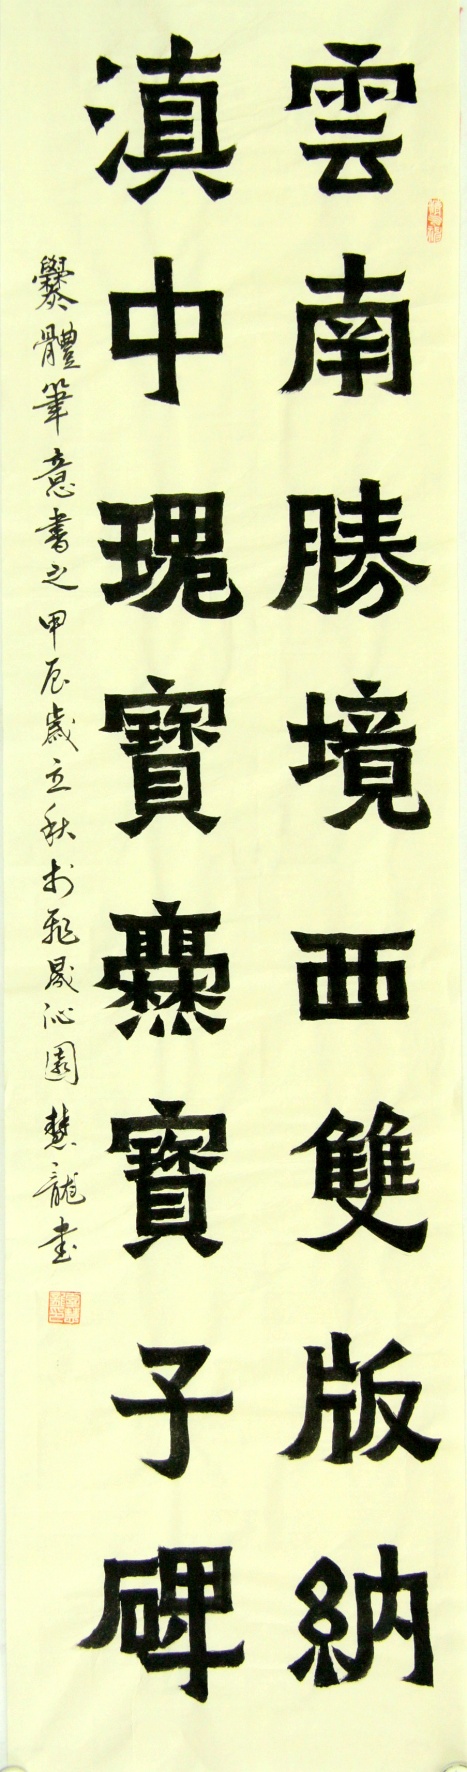 雲南勝境西雙版納
滇中瑰寶爨寶子碑
爨體筆意書之甲辰歲立秋於龍晟沁園慧龍書